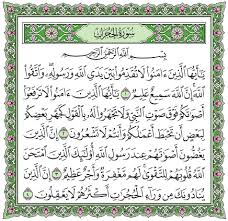 سُورَةُ الحُجُرَاتِ
بِسْمِ ٱللَّهِ ٱلرَّحْمَٰنِ ٱلرَّحِيمِ
يَٰٓأَيُّهَا ٱلَّذِينَ ءَامَنُوا۟ لَا تُقَدِّمُوا۟ بَيْنَ يَدَىِ ٱللَّهِ وَرَسُولِهِۦ ۖ وَٱتَّقُوا۟
ٱللَّهَ ۚ إِنَّ ٱللَّهَ سَمِيعٌ عَلِيمٌ ١ يَٰٓأَيُّهَا ٱلَّذِينَ ءَامَنُوا۟ لَا تَرْفَعُوٓا۟
أَصْوَٰتَكُمْ فَوْقَ صَوْتِ ٱلنَّبِىِّ وَلَا تَجْهَرُوا۟ لَهُۥ بِٱلْقَوْلِ كَجَهْرِ بَعْضِكُمْ
لِبَعْضٍ أَن تَحْبَطَ أَعْمَٰلُكُمْ وَأَنتُمْ لَا تَشْعُرُونَ ٢ إِنَّ ٱلَّذِينَ
يَغُضُّونَ أَصْوَٰتَهُمْ عِندَ رَسُولِ ٱللَّهِ أُو۟لَٰٓئِكَ ٱلَّذِينَ ٱمْتَحَنَ
ٱللَّهُ قُلُوبَهُمْ لِلتَّقْوَىٰ ۚ لَهُم مَّغْفِرَةٌ وَأَجْرٌ عَظِيمٌ ٣ إِنَّ ٱلَّذِينَ
يُنَادُونَكَ مِن وَرَآءِ ٱلْحُجُرَٰتِ أَكْثَرُهُمْ لَا يَعْقِلُونَ ٤